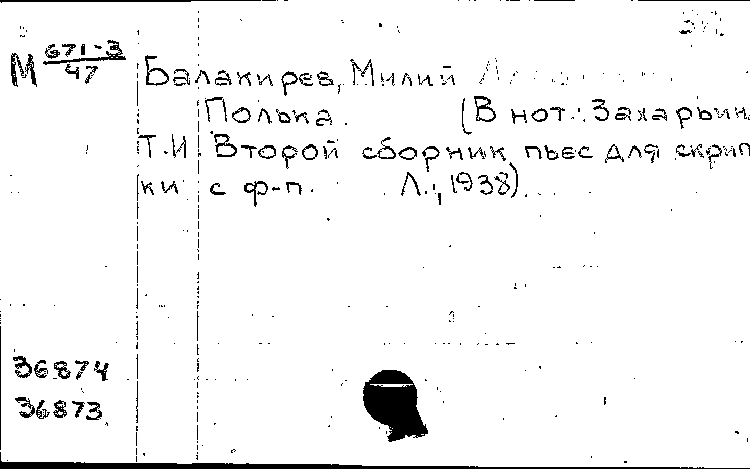 М 671-3/47 Балакирев, Милий
Полька. (В нот.: Захарьин
Т.И. Второй сборник пьес для скрип
ки с ф-п. Л., 1938).
36874
36873